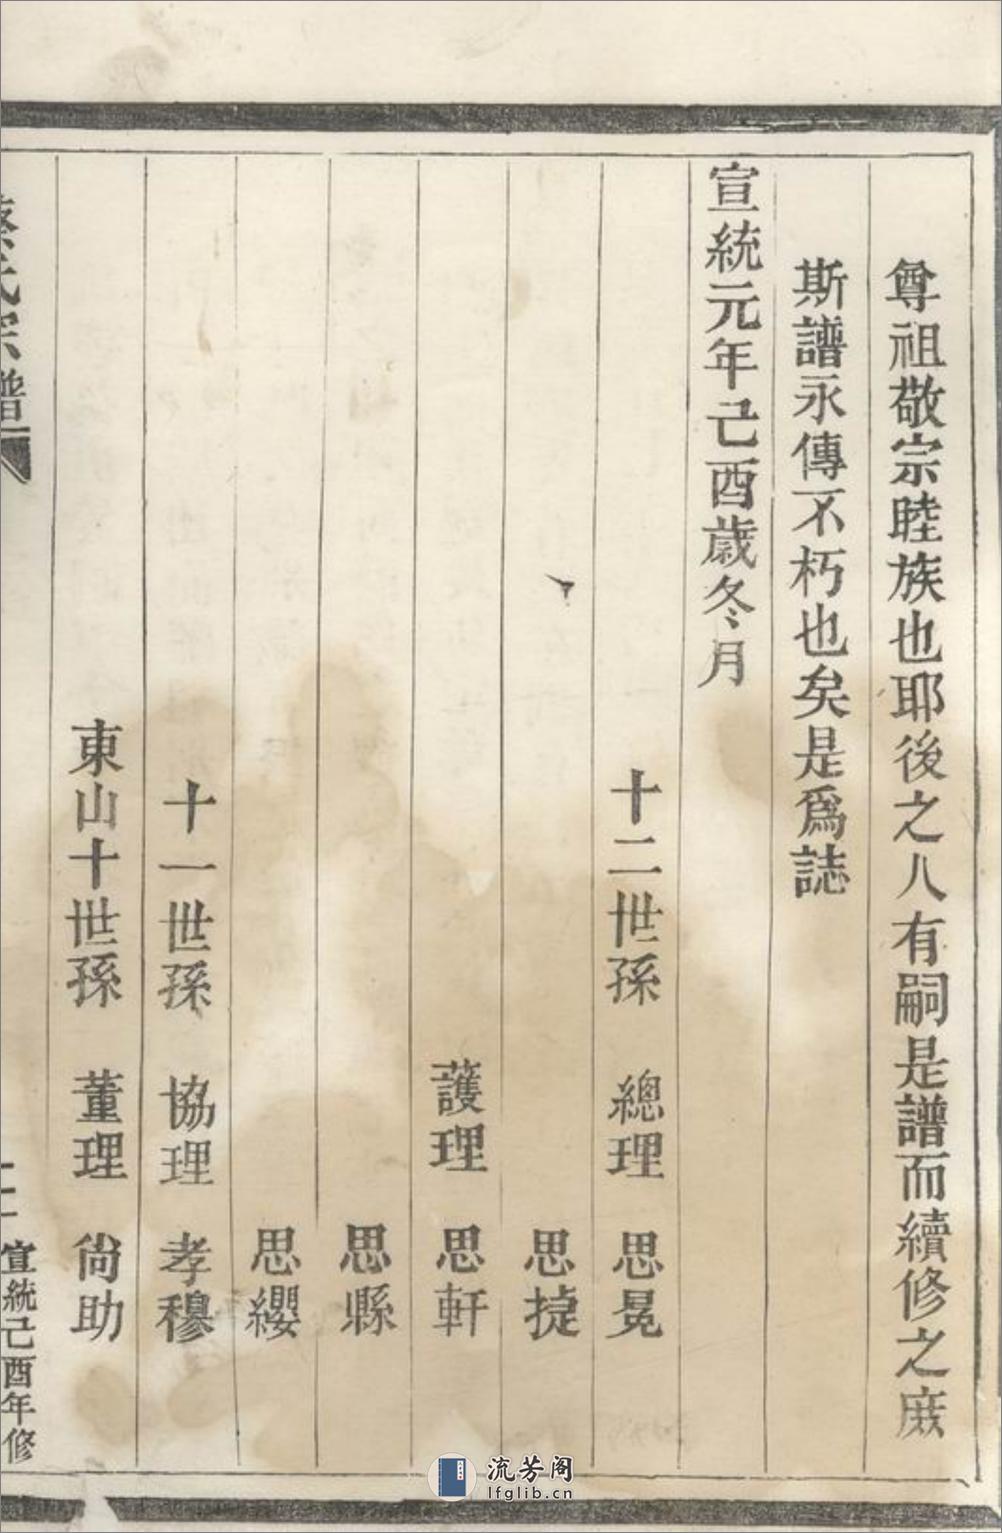 尊祖敬宗睦族也耶後之人有嗣是譜而續修之庶
斯譜永傳不朽也矣是爲誌
宣統元年己酉歲冬月
十二世孫 總理 思冕
思㨗
護理 思軒
思縣
思纓
十一世孫 協理 孝穆
東山十世孫 董理 尙助
氏宗譜
宣統己酉年修
流芳阁
lfglib.cn